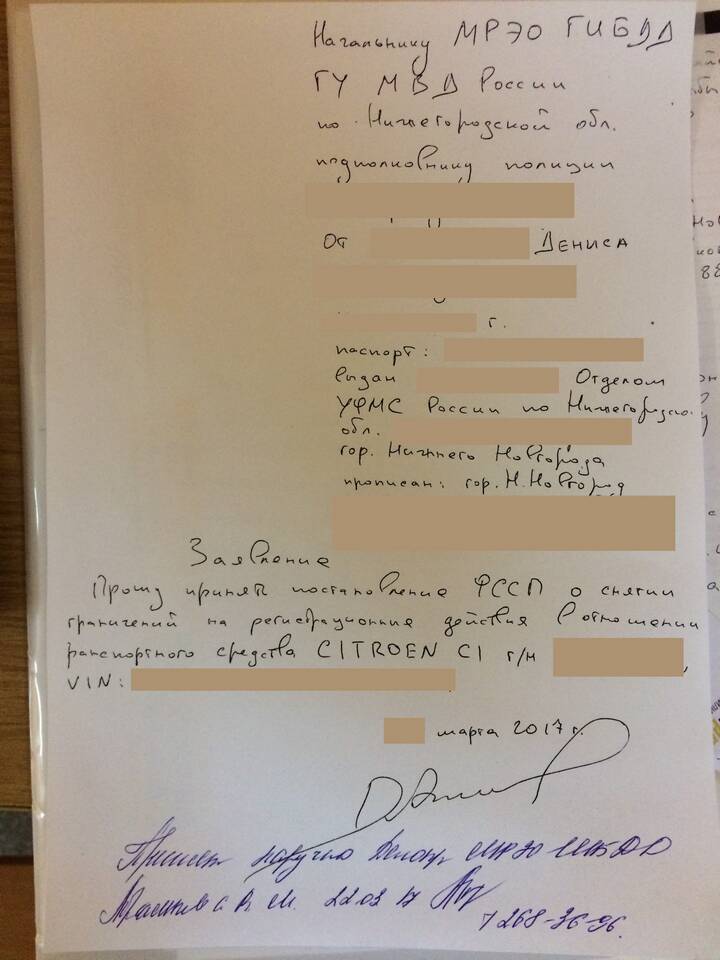 Начальнику МРЭО ГИБДД
ГУ МВД России
по Нижегородской обл.
подполковнику полиции
От Дениса
г.
паспорт:
выдан Отделом
УФМС России по Нижегородско
обл.
гор. Нижнего Новгорода
прописан: гор. Н.Новгород
Заявление
Прошу принять постановление ФССП о снятии
граничений на регистрационные действия в отношении
ранспортного средства CITROEN C1 г/н ,
VIN:
марта 2017 г.
Принял нарочно МРЭО ГИБДД
22 03 17
268-36-96.